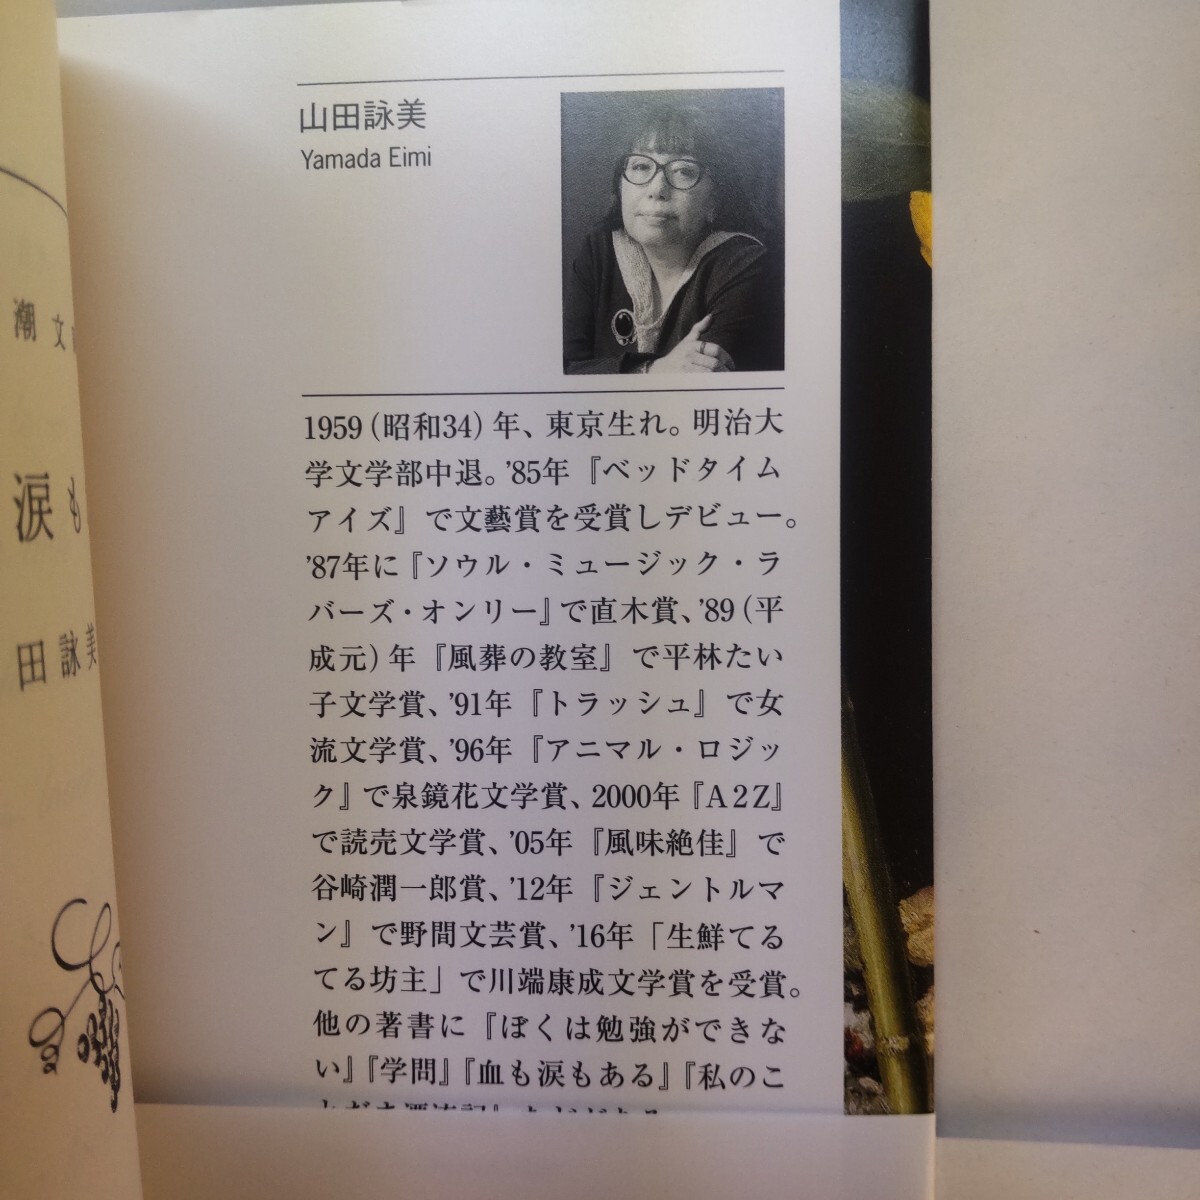 山田詠美
Yamada Eimi
1959（昭和34）年、東京生れ。明治大
学文学部中退。’85年『ベッドタイム
アイズ』で文藝賞を受賞しデビュー。
’87年に『ソウル・ミュージック・ラ
バーズ・オンリー』で直木賞、’89（平
成元）年『風葬の教室』で平林たい
子文学賞、’91年『トラッシュ』で女
流文学賞、’96年『アニマル・ロジッ
ク』で泉鏡花文学賞、2000年『A2Z』
で読売文学賞、’05年『風味絶佳』で
谷崎潤一郎賞、’12年『ジェントルマ
ン』で野間文芸賞、’16年「生鮮てる
てる坊主」で川端康成文学賞を受賞。
他の著書に『ぼくは勉強ができな
い』『学問』『血も涙もある』『私のこ
潮文
涙も
田詠美